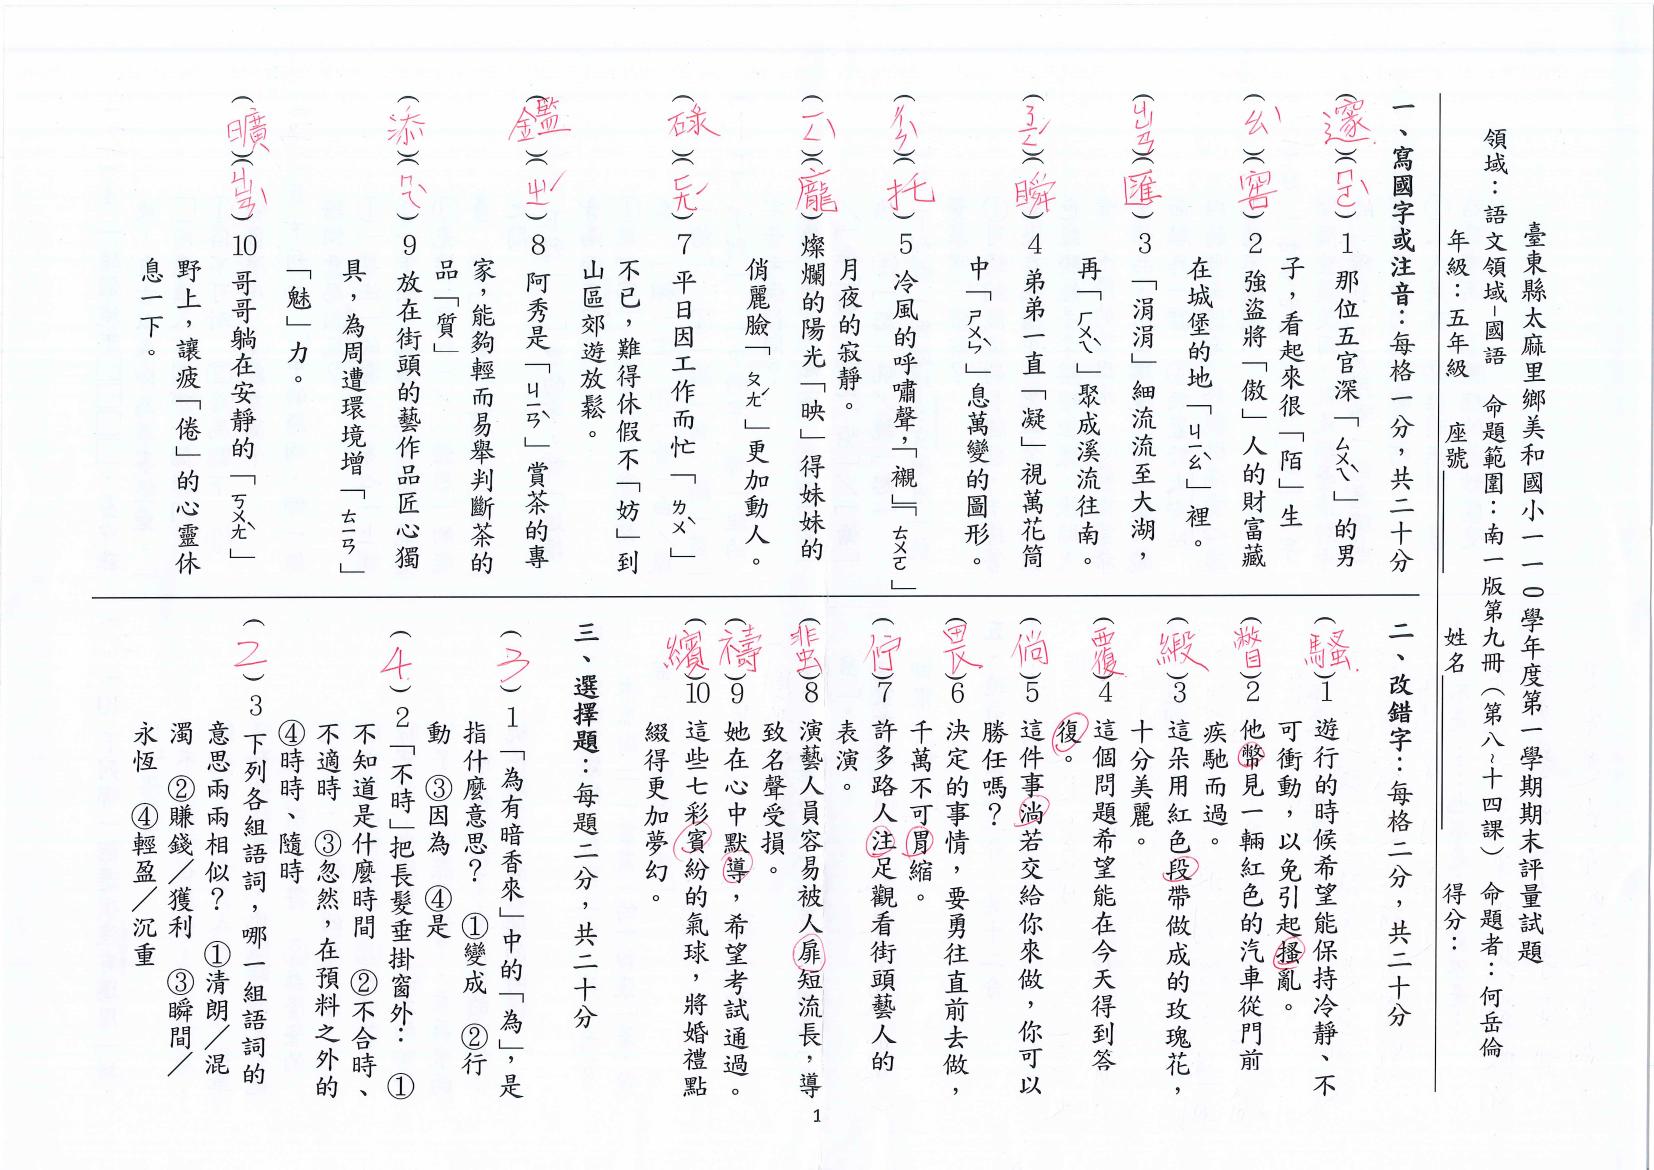 臺東縣太麻里鄉美和國小一一0學年度第一學期期末評量試題
領域：語文領域-國語　命題範圍：南一版第九冊（第八~十四課）　命題者：何岳倫
年級：五年級　座號　姓名　得分：
一、寫國字或注音：每格一分，共二十分
(邃)(ㄇㄛˋ)1 那位五官深「ㄙㄨㄟˋ」的男
子，看起來很「陌」生
(ㄠˋ)(窖)2 強盜將「傲」人的財富藏
在城堡的地「ㄐㄧㄠˋ」裡。
(ㄐㄩㄢ)(匯)3「涓涓」細流流至大湖，
再「ㄏㄨㄟˋ」聚成溪流往南。
(ㄋㄧㄥˊ)(瞬)4 弟弟一直「凝」視萬花筒
中「ㄕㄨㄣˋ」息萬變的圖形。
(ㄔㄣˋ)(托)5 冷風的呼嘯聲，「襯」「ㄊㄨㄛ」
月夜的寂靜。
(ㄧㄥˋ)(龐)6 燦爛的陽光「映」得妹妹的
俏麗臉「ㄆㄤˊ」更加動人。
(碌)(ㄈㄤˊ)7 平日因工作而忙「ㄌㄨˋ」
不已，難得休假不「妨」到
山區郊遊放鬆。
(鑑)(ㄓˊ)8 阿秀是「ㄐㄧㄢˋ」賞茶的專
家，能夠輕而易舉判斷茶的
品「質」
(添)(ㄇㄟˋ)9 放在街頭的藝術作品匠心獨
具，為周遭環境增「ㄊㄧㄢ」
「魅」力。
(曠)(ㄐㄩㄢˋ)10 哥哥躺在安靜的「ㄎㄨㄤˋ」
野上，讓疲「倦」的心靈休
息一下。
二、改錯字：每格二分，共二十分
(騷)1 遊行的時候希望能保持冷靜、不
可衝動，以免引起搔亂。
(瞥)2 他幣見一輛紅色的汽車從門前
疾馳而過。
(緞)3 這朵用紅色段帶做成的玫瑰花，
十分美麗。
(覆)4 這個問題希望能在今天得到答
復。
(倘)5 這件事淌若交給你來做，你可以
勝任嗎？
(畏)6 決定的事情，要勇往直前去做，
千萬不可胃縮。
(佇)7 許多路人注足觀看街頭藝人的
表演。
(蜚)8 演藝人員容易被人扉短流長，導
致名聲受損。
(禱)9 她在心中默導，希望考試通過。
(繽)10 這些七彩賓紛的氣球，將婚禮點
綴得更加夢幻。
三、選擇題：每題二分，共二十分
(3)1 「為有暗香來」中的「為」，是
指什麼意思？　①變成　②行
動　③因為　④是
(4)2 「不時」把長髮垂掛窗外：　①
不知道是什麼時間　②不合時、
不適時　③忽然，在預料之外的
④時時、隨時
(2)3 下列各組語詞，哪一組語詞的
意思兩兩相似？　①清朗／混
濁　②賺錢／獲利　③瞬間／
永恆　④輕盈／沉重
1